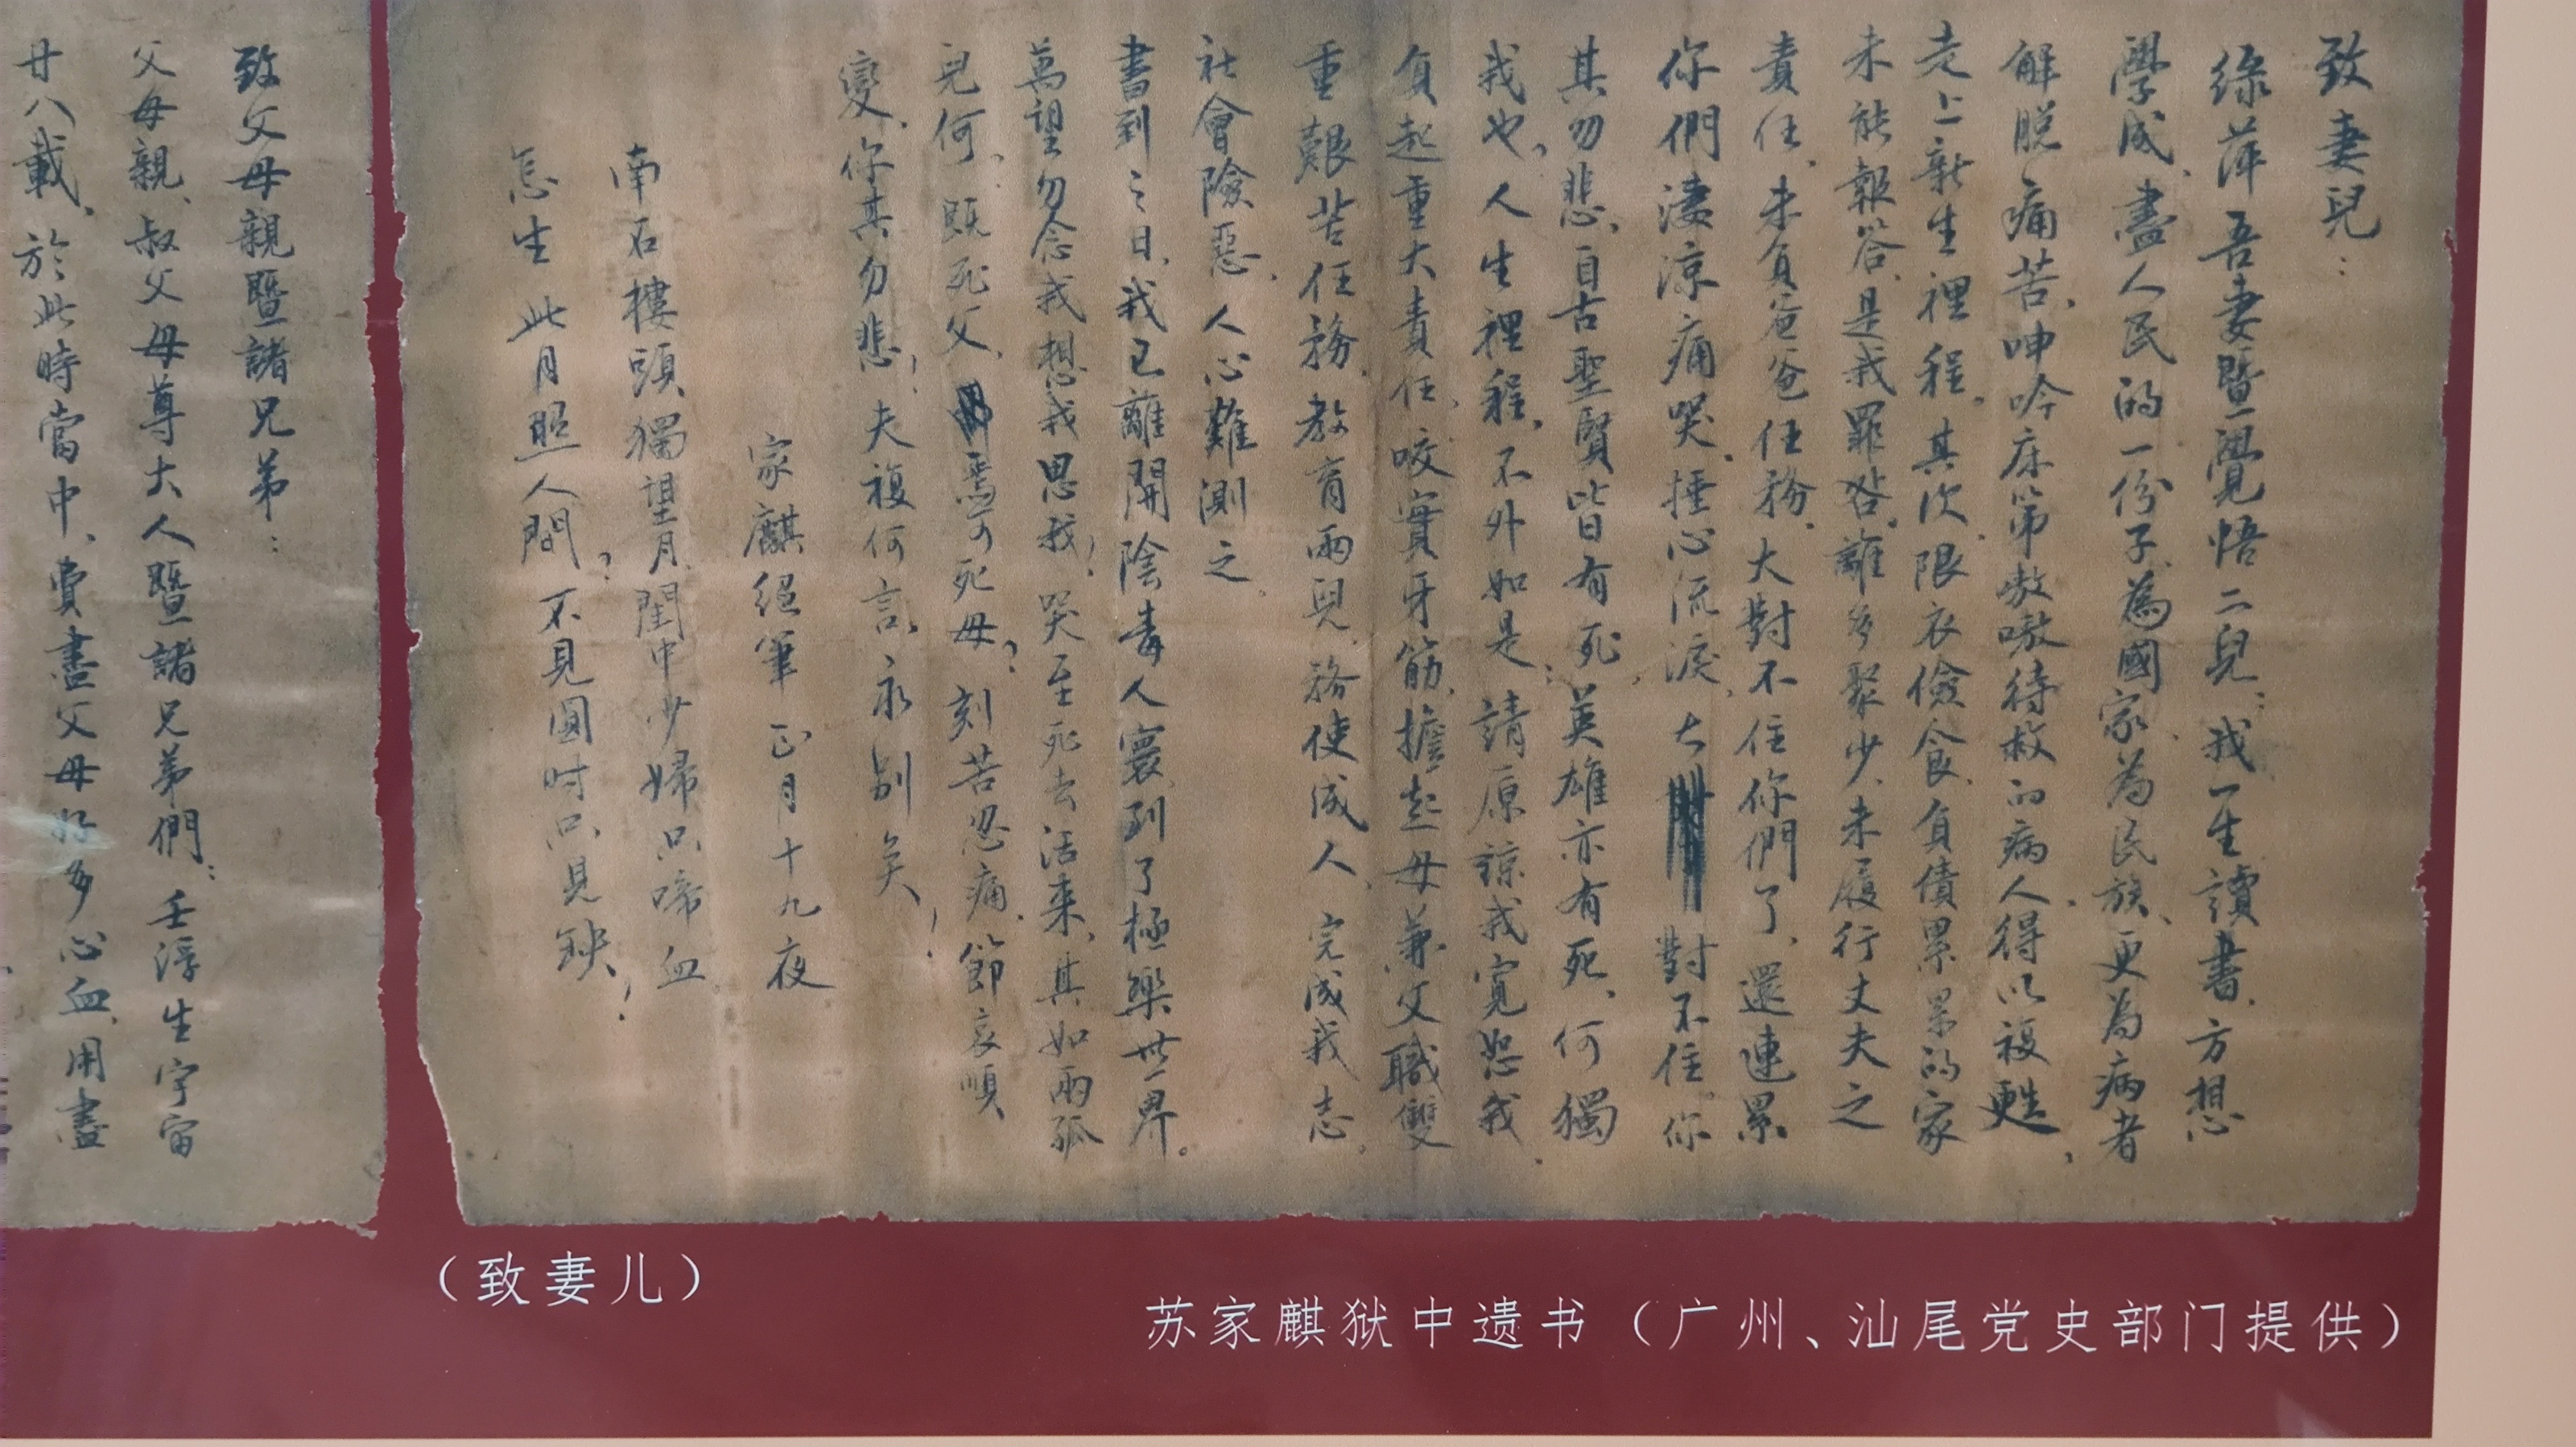 致妻兒：
綠萍吾妻暨覺悟二兒：我一生讀書、方想
學成、盡人民的一份子、為國家、為民族、更為病者
解脱痛苦、呻吟床第嗷嗷待救的病人、得以複甦、
走上新生裡程。其次、限衣儉食、負債累累的家
未能報答、是我罪咎。離多聚少、未履行丈夫之
責任、未負爸爸任務、大對不住你們了、還連累
你們淒涼痛哭、捶心流淚、大對不住。你
其勿悲、自古聖賢皆有死；英雄亦有死、何獨
我也、人生裡程、不外如是、請原諒我寬恕我、
負起重大責任、咬實牙筋、擔起母兼父職雙
重艱苦任務、教育兩兒、務使成人、完成我志。
社會險惡、人心難測之。
書到之日、我已離開陰毒人寰、到了極樂世界。
萬望勿念我想我思我！哭至死去活來、其如兩孤
兒何、既死父、焉可死母？刻苦忍痛、節哀順
變、你其勿悲！夫複何言、永別矣！
家麒絕筆 正月十九夜
南石樓頭獨望月、閨中少婦只啼血。
怎生此月照人間？不見圓時只見缺！
致父母親暨諸兄弟：
父母親、叔父母尊大人暨諸兄弟們：壬浮生宇宙
廿八載、於此時當中、費盡父母好多心血、用盡
（致妻儿）
苏家麒狱中遗书（广州、汕尾党史部门提供）